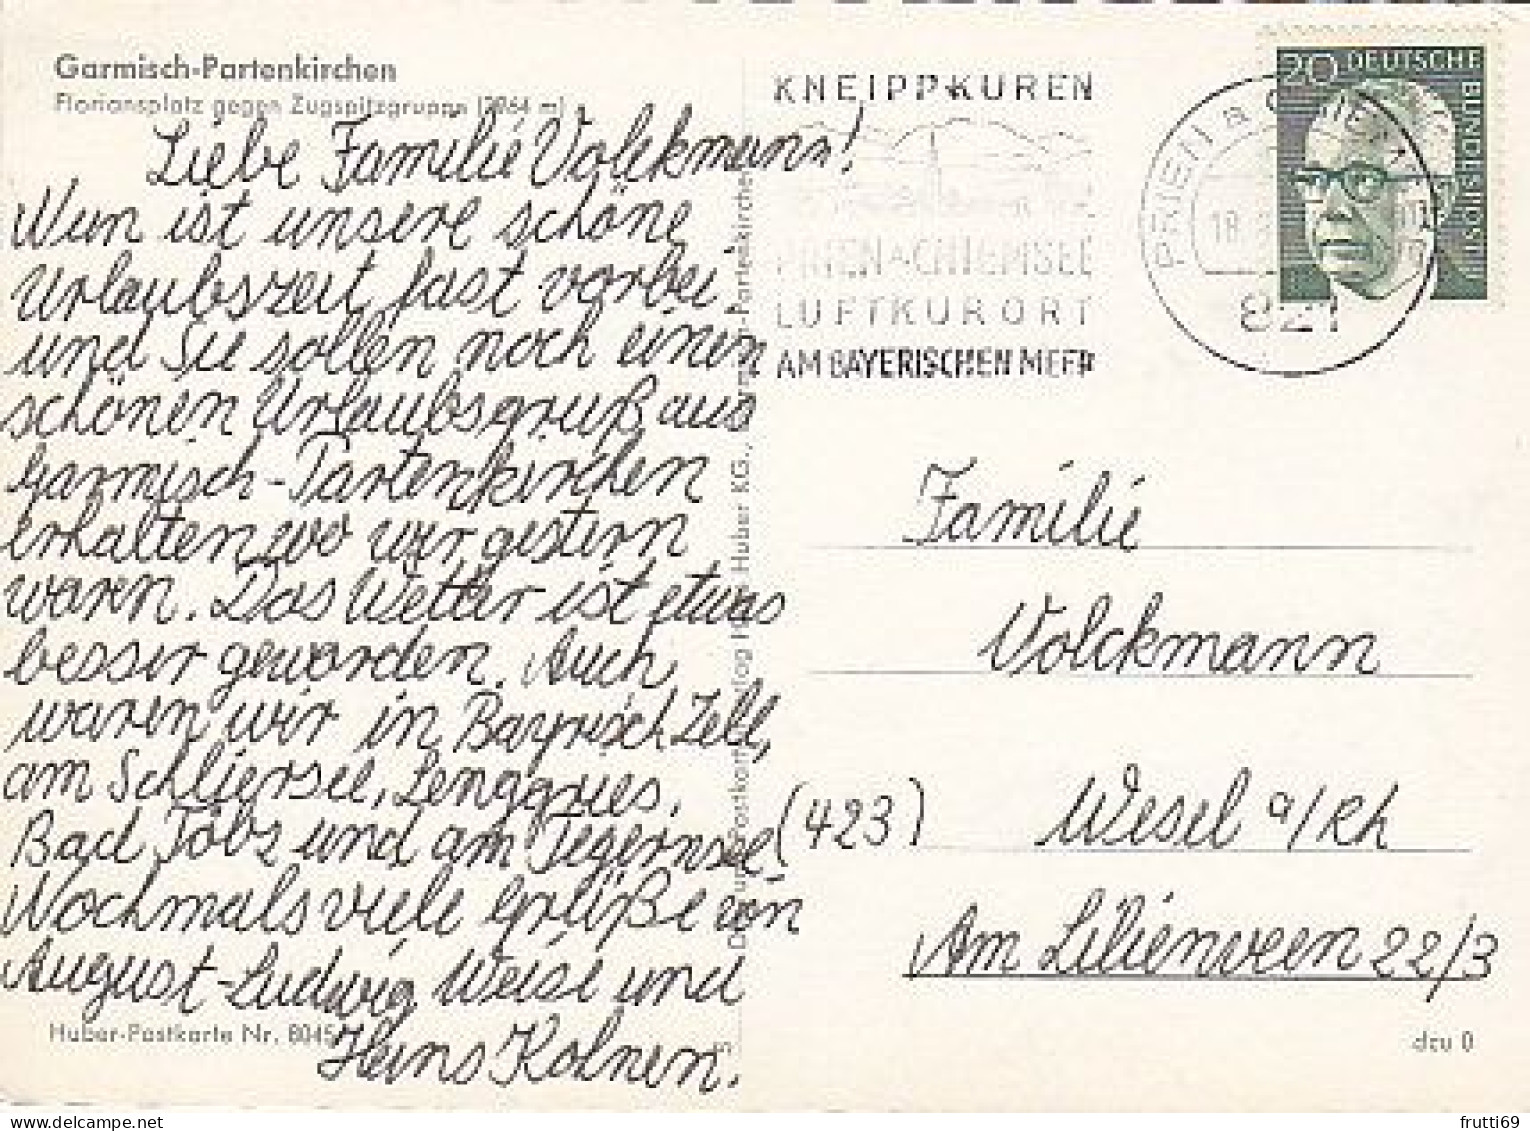 Garmisch-Partenkirchen
Floriansplatz gegen Zugspitzgruppe (2964 m)
Liebe Familie Volckmann!
Nun ist unsere schöne
Urlaubszeit fast vorbei
und Sie sollen noch einen
schönen Urlaubsgruß aus
Garmisch-Partenkirchen
erhalten, wo wir gestern
waren. Das Wetter ist etwas
besser geworden. Auch
waren wir in Bayrisch Zell,
am Schliersee, Lenggries,
Bad Tölz und am Tegernsee.
Nochmals viele Grüße von
August-Ludwig Weise und
Hans Kolnen.
Huber-Postkarte Nr. 8045
Huber KG.,
Garmisch-Partenkirchen
KNEIPPKUREN
PRIEN A CHIEMSEE
LUFTKURORT
AM BAYERISCHEN MEER
PRIEN a CHIEM
18.
821
20 DEUTSCHE
BUNDESPOST
Familie
Volckmann
(423) Wesel a/Rh
Am Lilienveen 22/3
dcu 0
frutti69